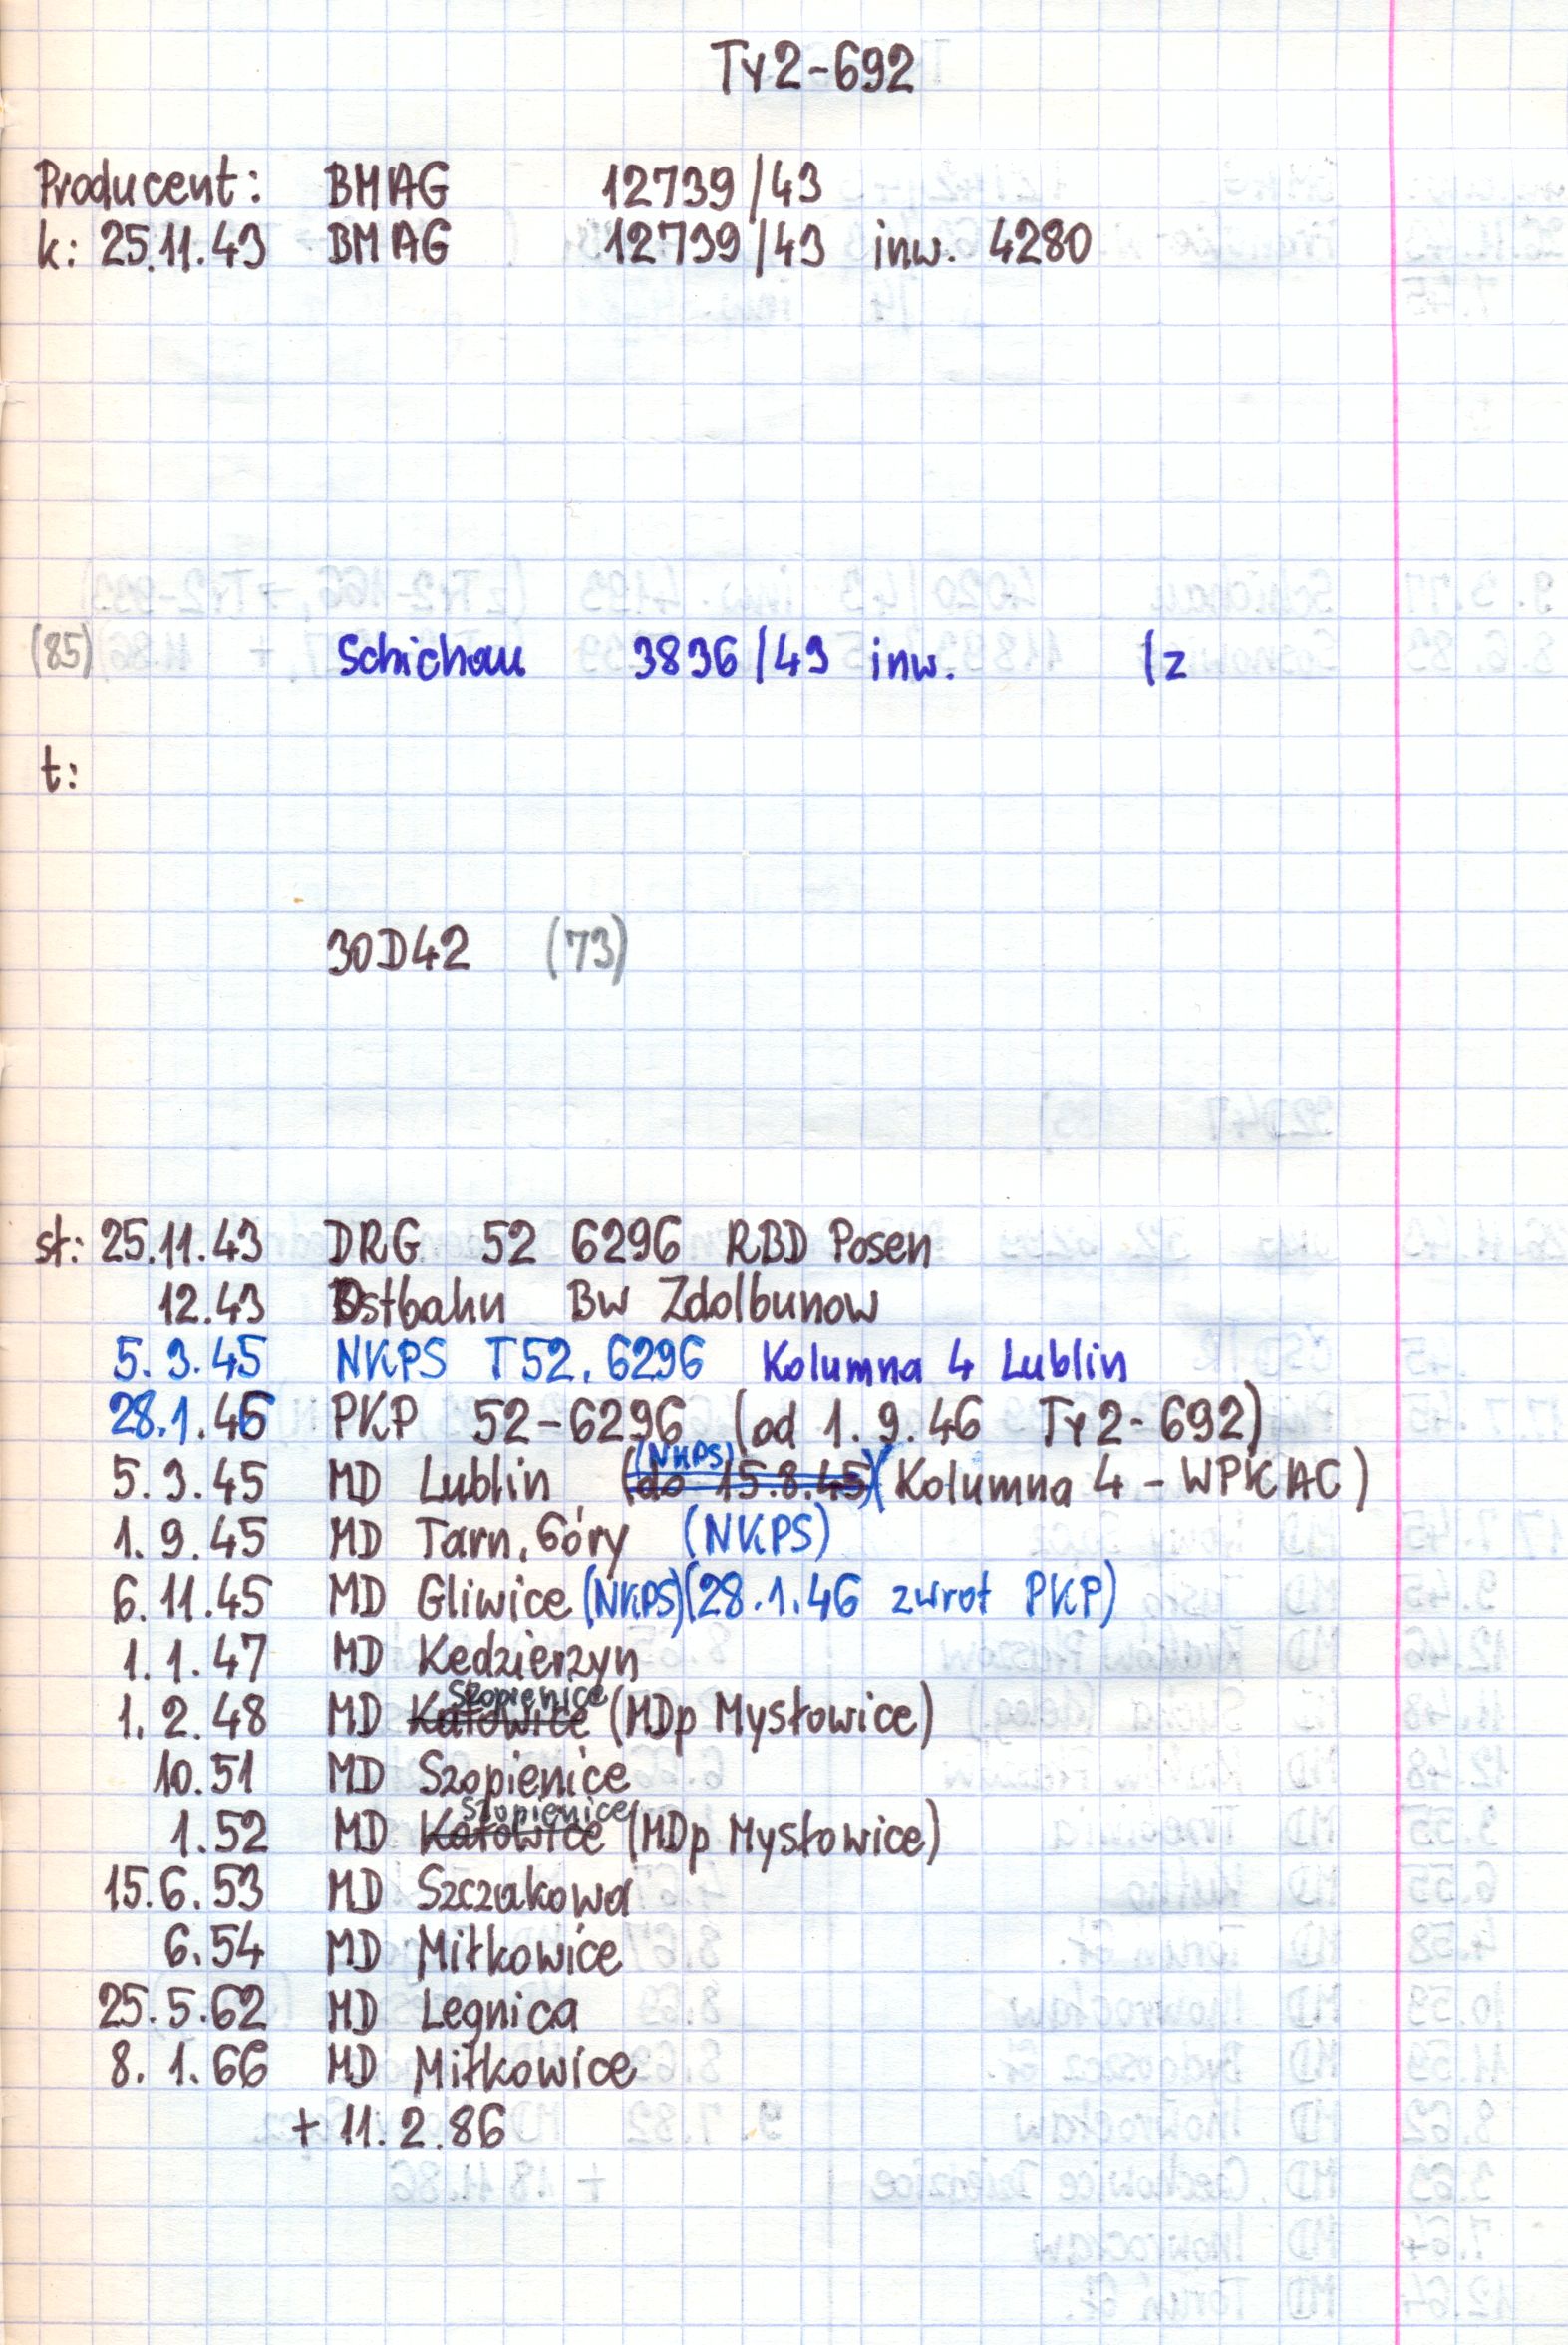 Ty2-692
Producent: BMAG 12739/43
k: 25.11.43 BMAG 12739/43 inw. 4280
(85) Schichau 3836/43 inw. (z
t:
30D42 (73)
st: 25.11.43 DRG 52 6296 RBD Posen
12.43 Ostbahn Bw Zdolbunow
5.3.45 NKPS T52.6296 Kolumna 4 Lublin
28.1.46 PKP 52-6296 (od 1.9.46 Ty2-692)
(NKPS)
5.3.45 MD Lublin (do 15.8.45) (Kolumna 4 - WPKAC)
1.9.45 MD Tarn. Góry (NKPS)
6.11.45 MD Gliwice (NKPS) (28.1.46 zwrot PKP)
1.1.47 MD Kedzierzyn
Szopienice
1.2.48 MD Katowice (MDp Mysłowice)
10.51 MD Szopienice
Szopienice
1.52 MD Katowice (MDp Mysłowice)
15.6.53 MD Szczakowa
6.54 MD Miłkowice
25.5.62 MD Legnica
8.1.66 MD Miłkowice
+ 11.2.86